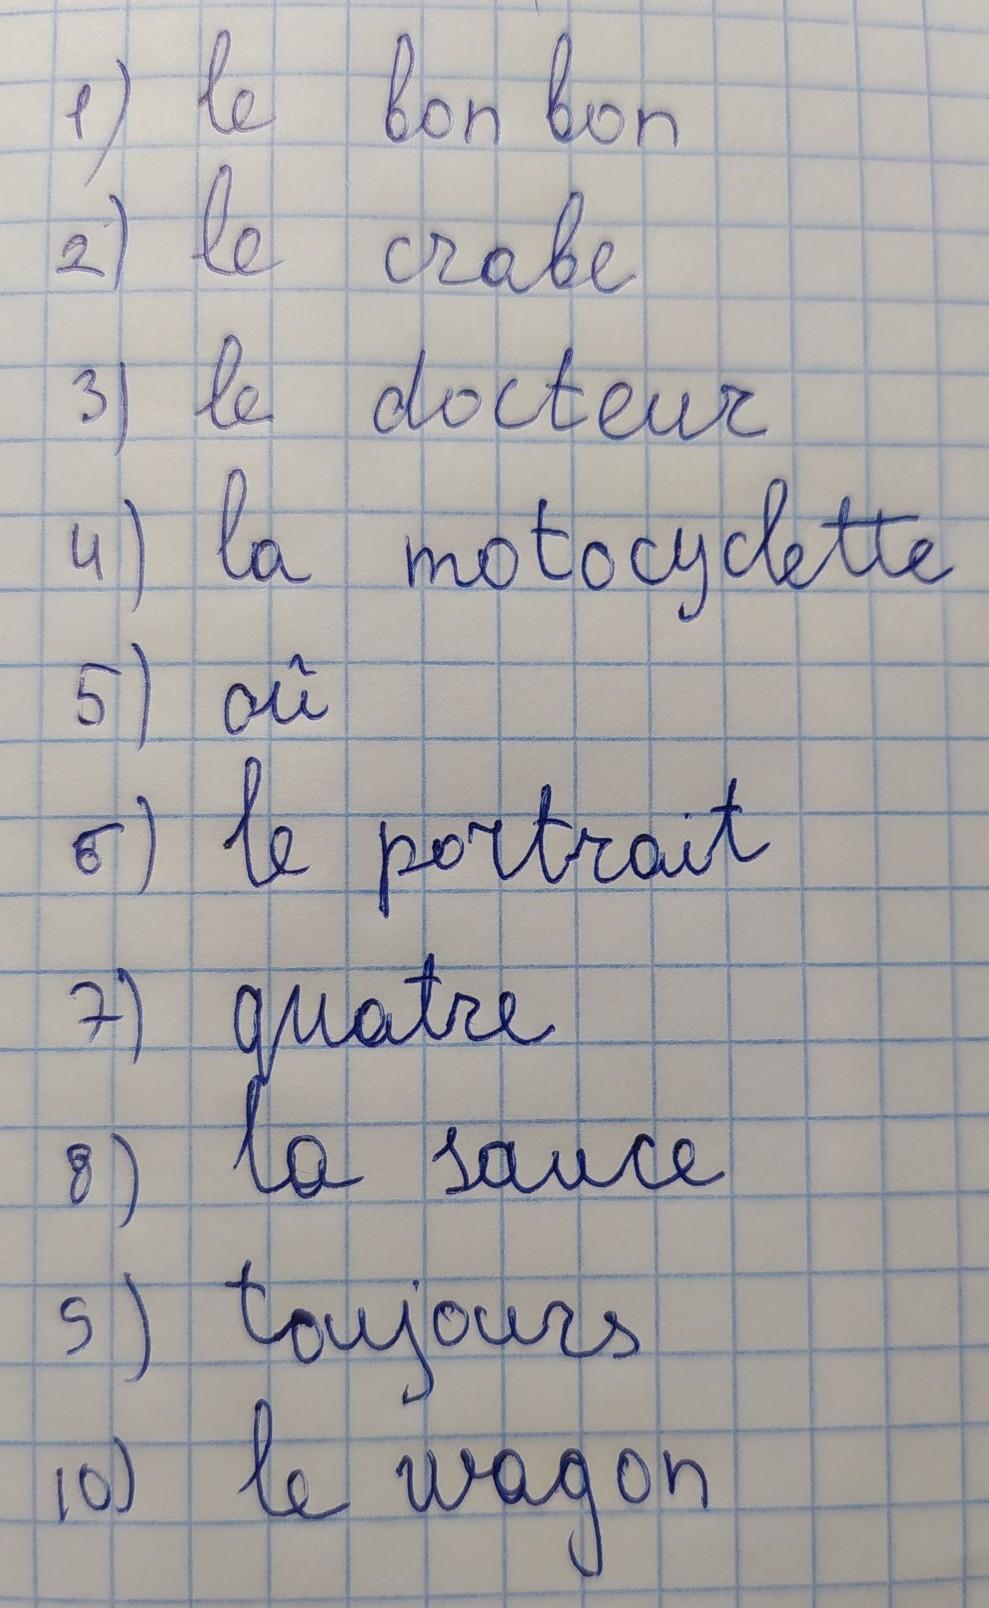 1) le bonbon
2) le crabe
3) le docteur
4) la motocyclette
5) oû
6) le portrait
7) quatre
8) la sauce
9) toujours
10) le wagon